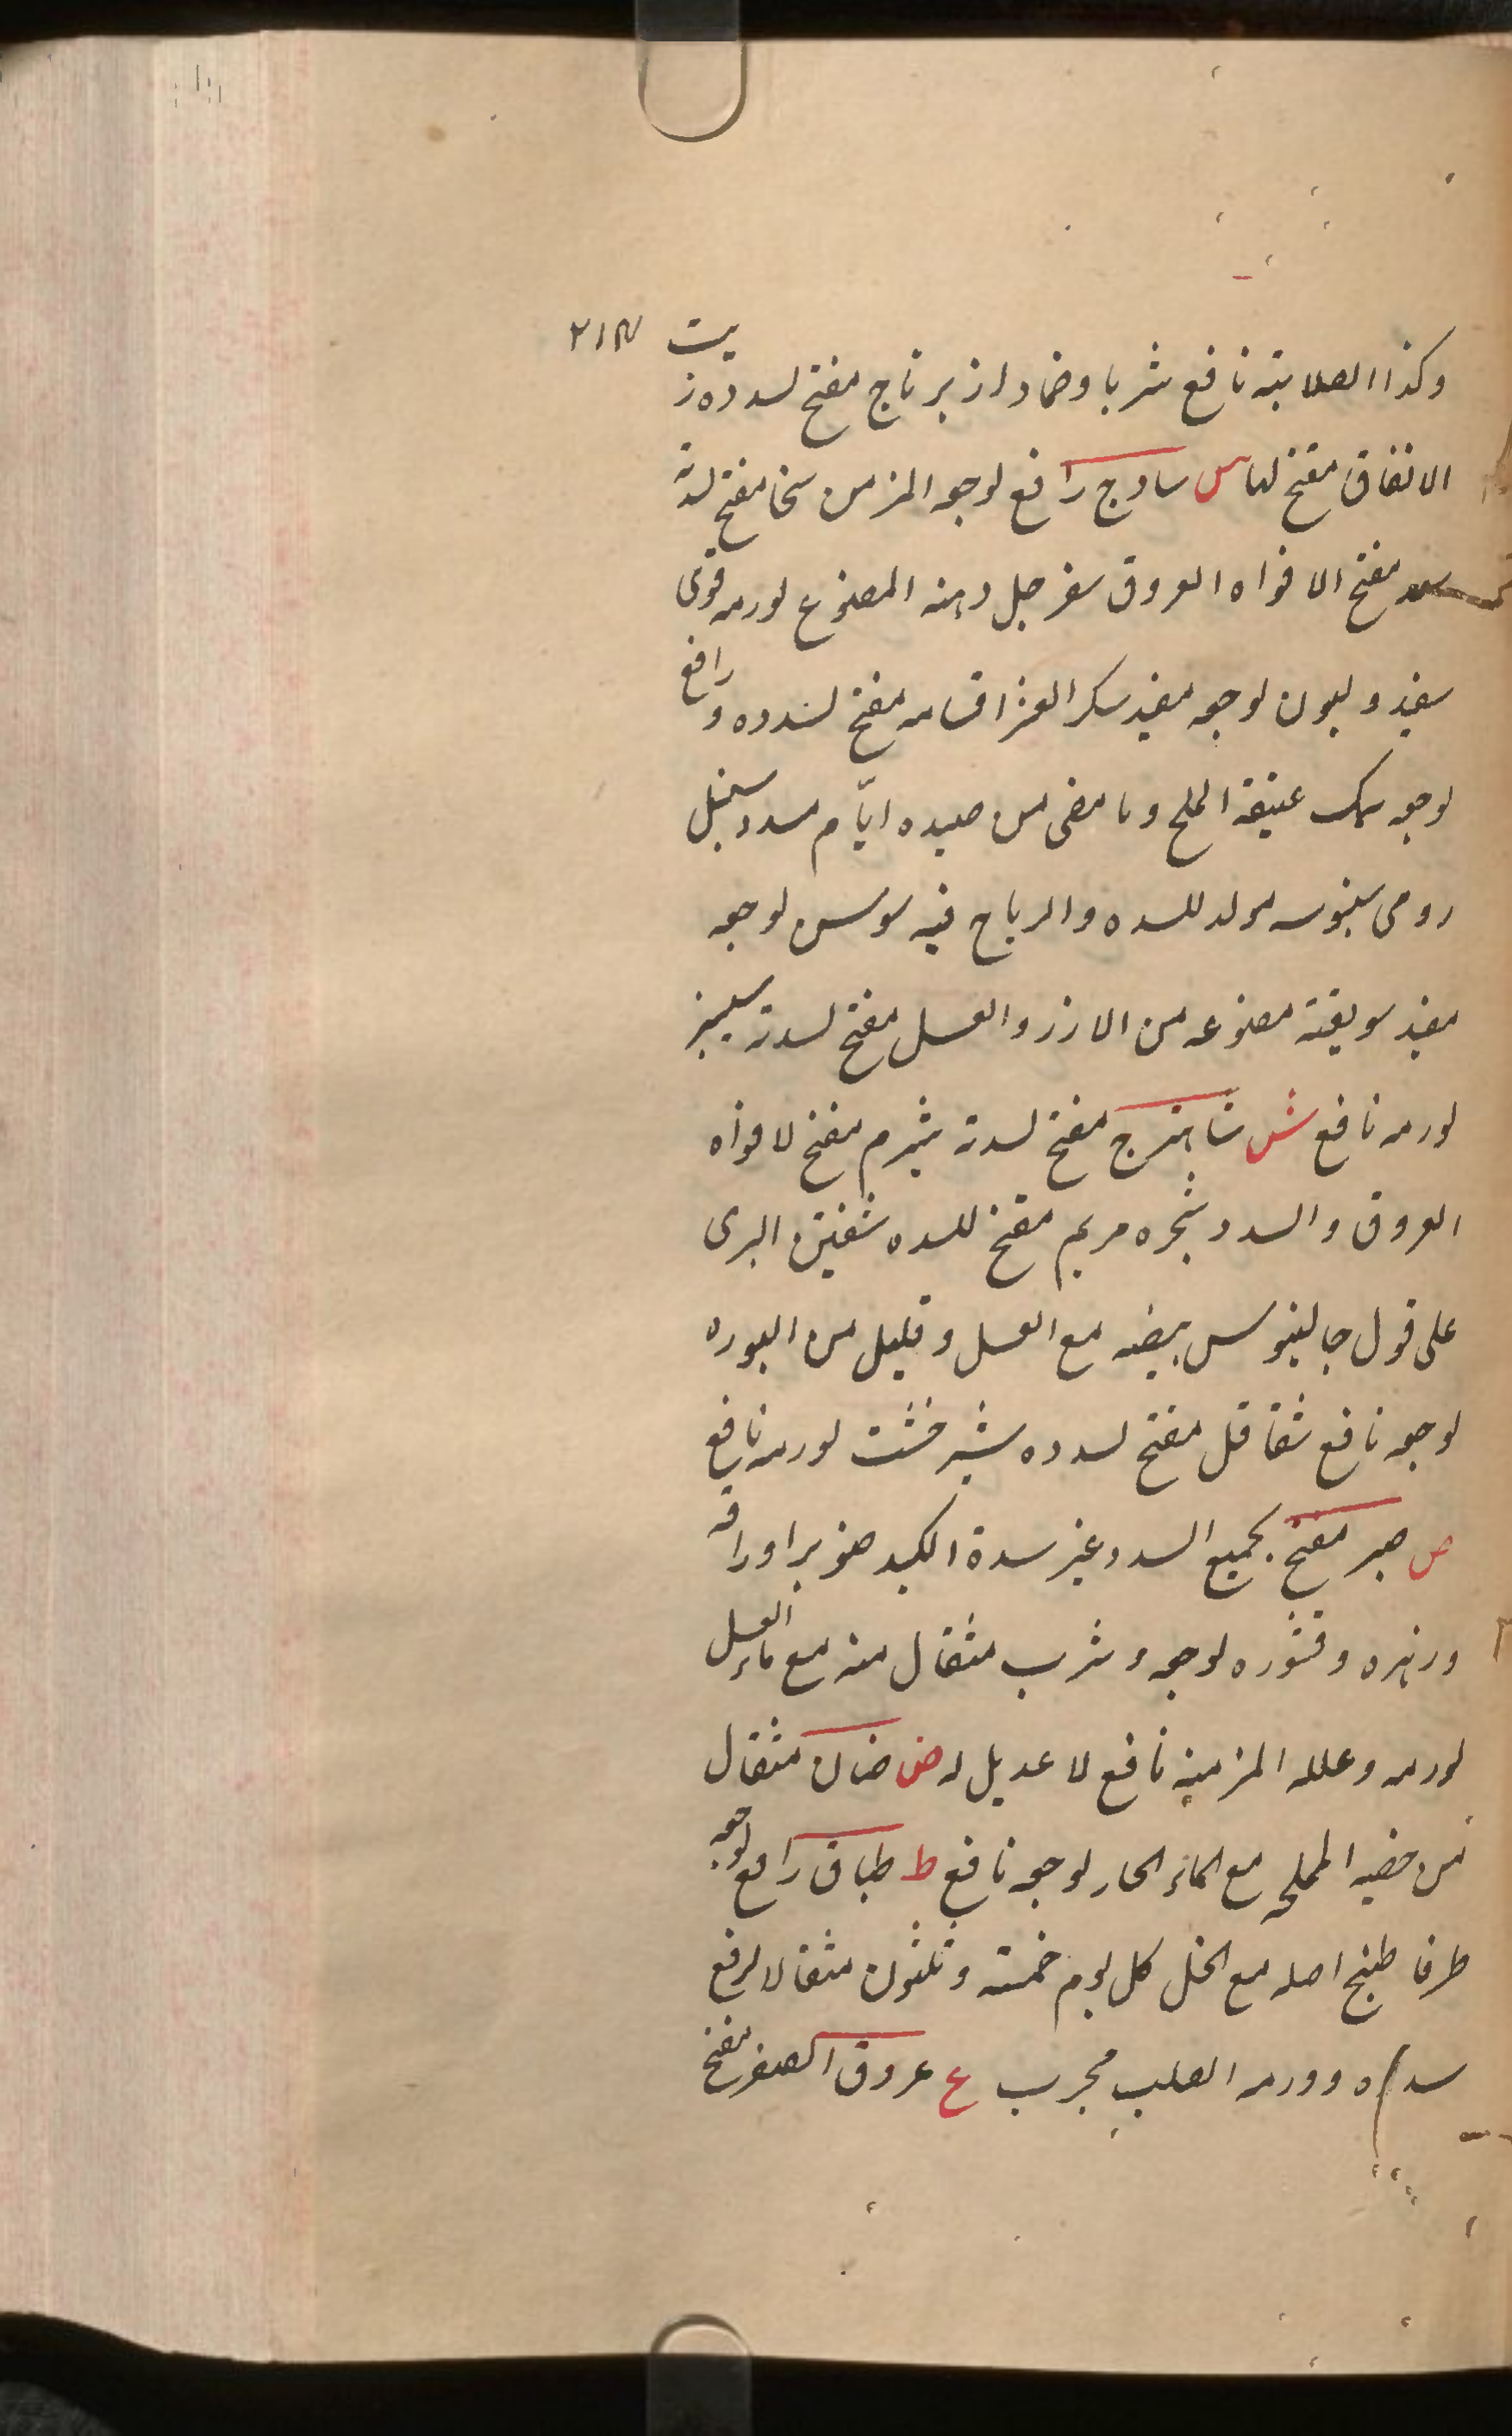 ٢١٨
وكذا الصلابته نافع شربا وضمادا زبرناج مفتح لسدده زيت
الانفاق مفتح لها س سادج رافع لوجعه المزمن سخا مفتح لسدته
سعد مفتح الافواه العروق سفرجل دهنه المصنوع لورمه قوى
سفيد وليون لوجعه مفيد سكر العشر اقسامه مفتح لسدده ورافع
لوجعه سمك عتيقة الملح وما مضى من صيده ايّام مسدد سنبل
رومى سنبوسه مولد للسده والرياح فيه سوسن لوجعه
مفيد سويقة مصنوعه من الارز والعسل مفتح لسدته
لورمه نافع ش شاهترج مفتح لسدته شبرم مفتح لافواه
العروق والسدد شجره مريم مفتح للسده شفنين البرى
على قول جالينوس بيضه مع العسل وقليل من البوره
لوجعه نافع شقاقل مفتح لسدده شيرخشت لورمه نافع
ص صبر مفتح لجميع السدد غير سدة الكبد صنوبر اوراقه
وزهره وقشوره لوجعه وشرب مثقال منه مع ماء العسل
لورمه وعلله المزمنة نافع لا عديل له ض ضان مثقال
من خصيه المملحه مع الماء الحار لوجعه نافع ط طباق رافع لوجعه
طرفا طبخ اصله مع الخل كل يوم خمسته وثلثون مثقالا لرفع
سده وورمه الصلب مجرب ع عروق الصفر مفتح